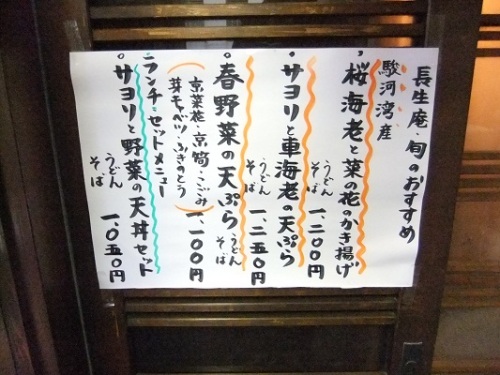 長生庵・旬のおすすめ
駿河湾産
・桜海老と菜の花のかき揚げ
うどん
そば
一、二〇〇円
・サヨリと車海老の天ぷら
うどん
そば
一、二五〇円
・春野菜の天ぷら
うどん
そば
(京菜花・京筍・こごみ
芽キャベツ・ふきのとう)
一、一〇〇円
・ランチ・セットメニュー
・サヨリと野菜の天丼セット
うどん
そば
一、〇五〇円